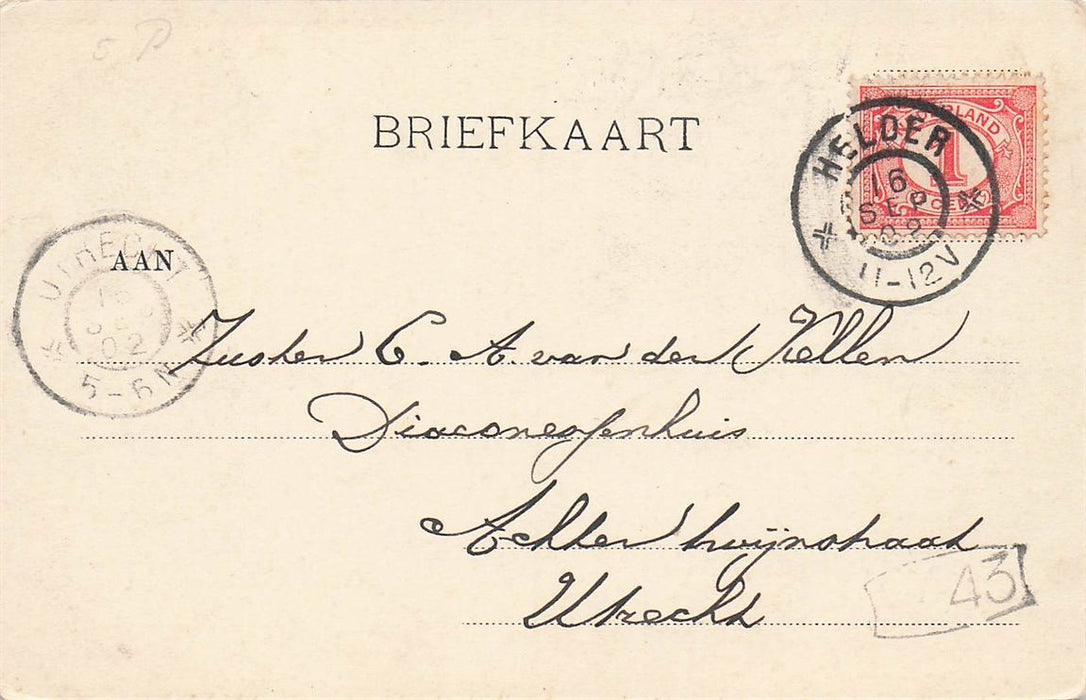 5 P
BRIEFKAART
NEDERLAND
1
CENT
HELDER
16
SEP
02
11-12V
UTRECHT
16
SEP
02
5-6N
AAN
Zuster C. A. van der Kellen
Diaconessenhuis
Achter twijnstraat
Utrecht
43